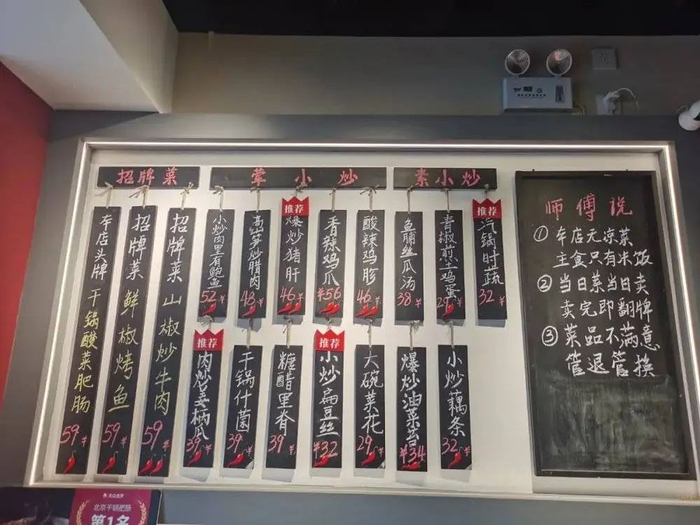 招牌菜
荤小炒
素小炒
本店头牌 干锅酸菜肥肠
59元
招牌菜 鲜椒烤鱼
59元
招牌菜 山椒炒牛肉
59元
小炒肉里有鲍鱼
52元
高笋炒腊肉
48元
推荐
爆炒猪肝
46元
香辣鸡爪
¥56
酸辣鸡胗
46元
鱼脯丝瓜汤
38
青椒煎土鸡蛋
29元
推荐
汽锅时蔬
32元
推荐
肉炒姜柄瓜
39元
干锅什菌
39元
糖醋里脊
39元
推荐
小炒扁豆丝
¥32
大碗菜花
29元
爆炒油菜苔
¥34
小炒藕条
32元
师傅说
① 本店无凉菜
主食只有米饭
② 当日菜当日卖
卖完即翻牌
③ 菜品不满意
管退管换
北京干锅肥肠
第1名